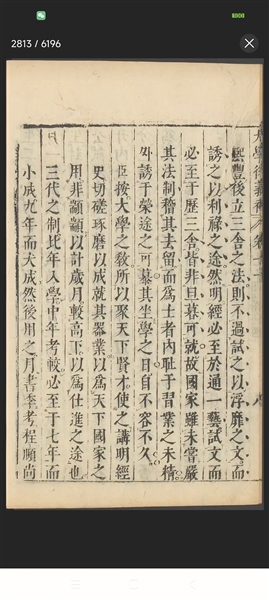 2813 / 6196
大學衍義補
熙豐後立三舍之法則不過試之以浮靡之文而
誘之以利祿之途然明經必至於通一藝試文而
必至于歷三舍皆非旦暮可就故國家雖未嘗嚴
其法制稽其去留而為士者内耻于習業之未精
外誘于榮途之可慕其坐學之日自不容不久
臣按大學之敎所以聚天下賢才使之講明經
史切磋琢磨以成就其器業以為天下國家之
用非顓顓以計歲月較高下以為仕進之途也
三代之制比年入學中年考較必至于七年而
小成九年而大成然後用之月書季考程頤尚